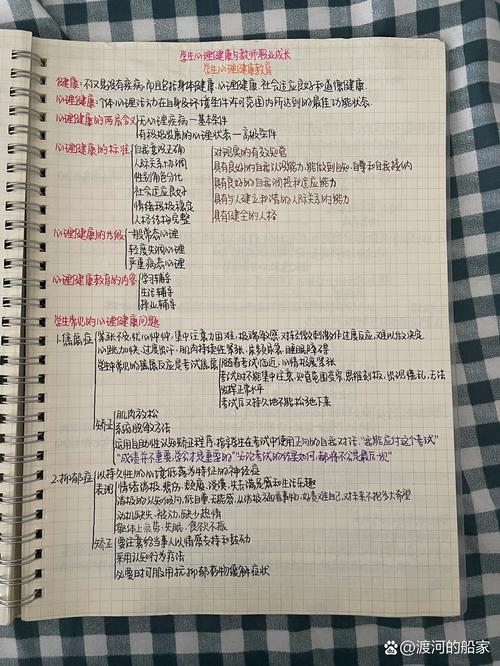 学生心理健康与教师职业成长
学生心理健康教育
健康：不仅是没有疾病，而且包括身体健康、心理健康、社会适应良好和道德健康.
心理健康：个体心理活动在自身及环境条件许可范围内所达到的最佳功能状态.
心理健康的两层含义 无心理疾病—基本条件
有积极发展的心理状态—高级条件
心理健康的标准 自我意识正确 对现实的有效知觉
人际关系协调 具有良好的自我认识能力，能做到自知、自尊和自我接纳
性别角色分化 具有良好的自我调控和适应能力
社会适应良好 具有与人建立和谐的人际关系的能力
情绪积极稳定 具有健全的人格
人格结构完整
心理健康的等级 一般常态心理
轻度失调心理
严重病态心理
心理健康教育的内容 学习辅导
生活辅导
择业辅导
学生常见的心理健康问题
1.焦虑症 紧张不安，忧心忡忡，集中注意力困难，极端敏感，对轻微刺激作过度反应，难以做决定.
心跳加快，过度出汗，肌肉持续性紧张，尿频尿急，睡眠障碍
学生中常见的焦虑反应是考试焦虑 随着考试临近，心情极度紧张
考试时不能集中注意，知觉范围变窄，思维刻板，出现慌乱，无法
发挥正常水平
考试后又持久地不能松弛下来
矫正 肌肉放松
系统脱敏方法
运用自助性认知矫正程序，指导学生在考试中使用正向的自我对话，“我能应付这个考试”
“成绩并不重要，学会才是重要的”“无论考试的结果如何，都将不会是最后一次”
2.抑郁症 以持久性的心境低落为特征的神经症
表现 情绪消极、悲伤、颓废、淡漠，失去满足感和生活乐趣
消极的认知倾向，低自尊无能感，从消极方面看事物，好责难自己，对未来不抱多大希望
动机缺失、被动，缺少热情
躯体上疲劳、失眠、食欲不振
矫正 要注意给当事人以情感支持和鼓励
采用认知行为疗法
必要时可服用抗抑郁药物缓解症状
@渡河的船家